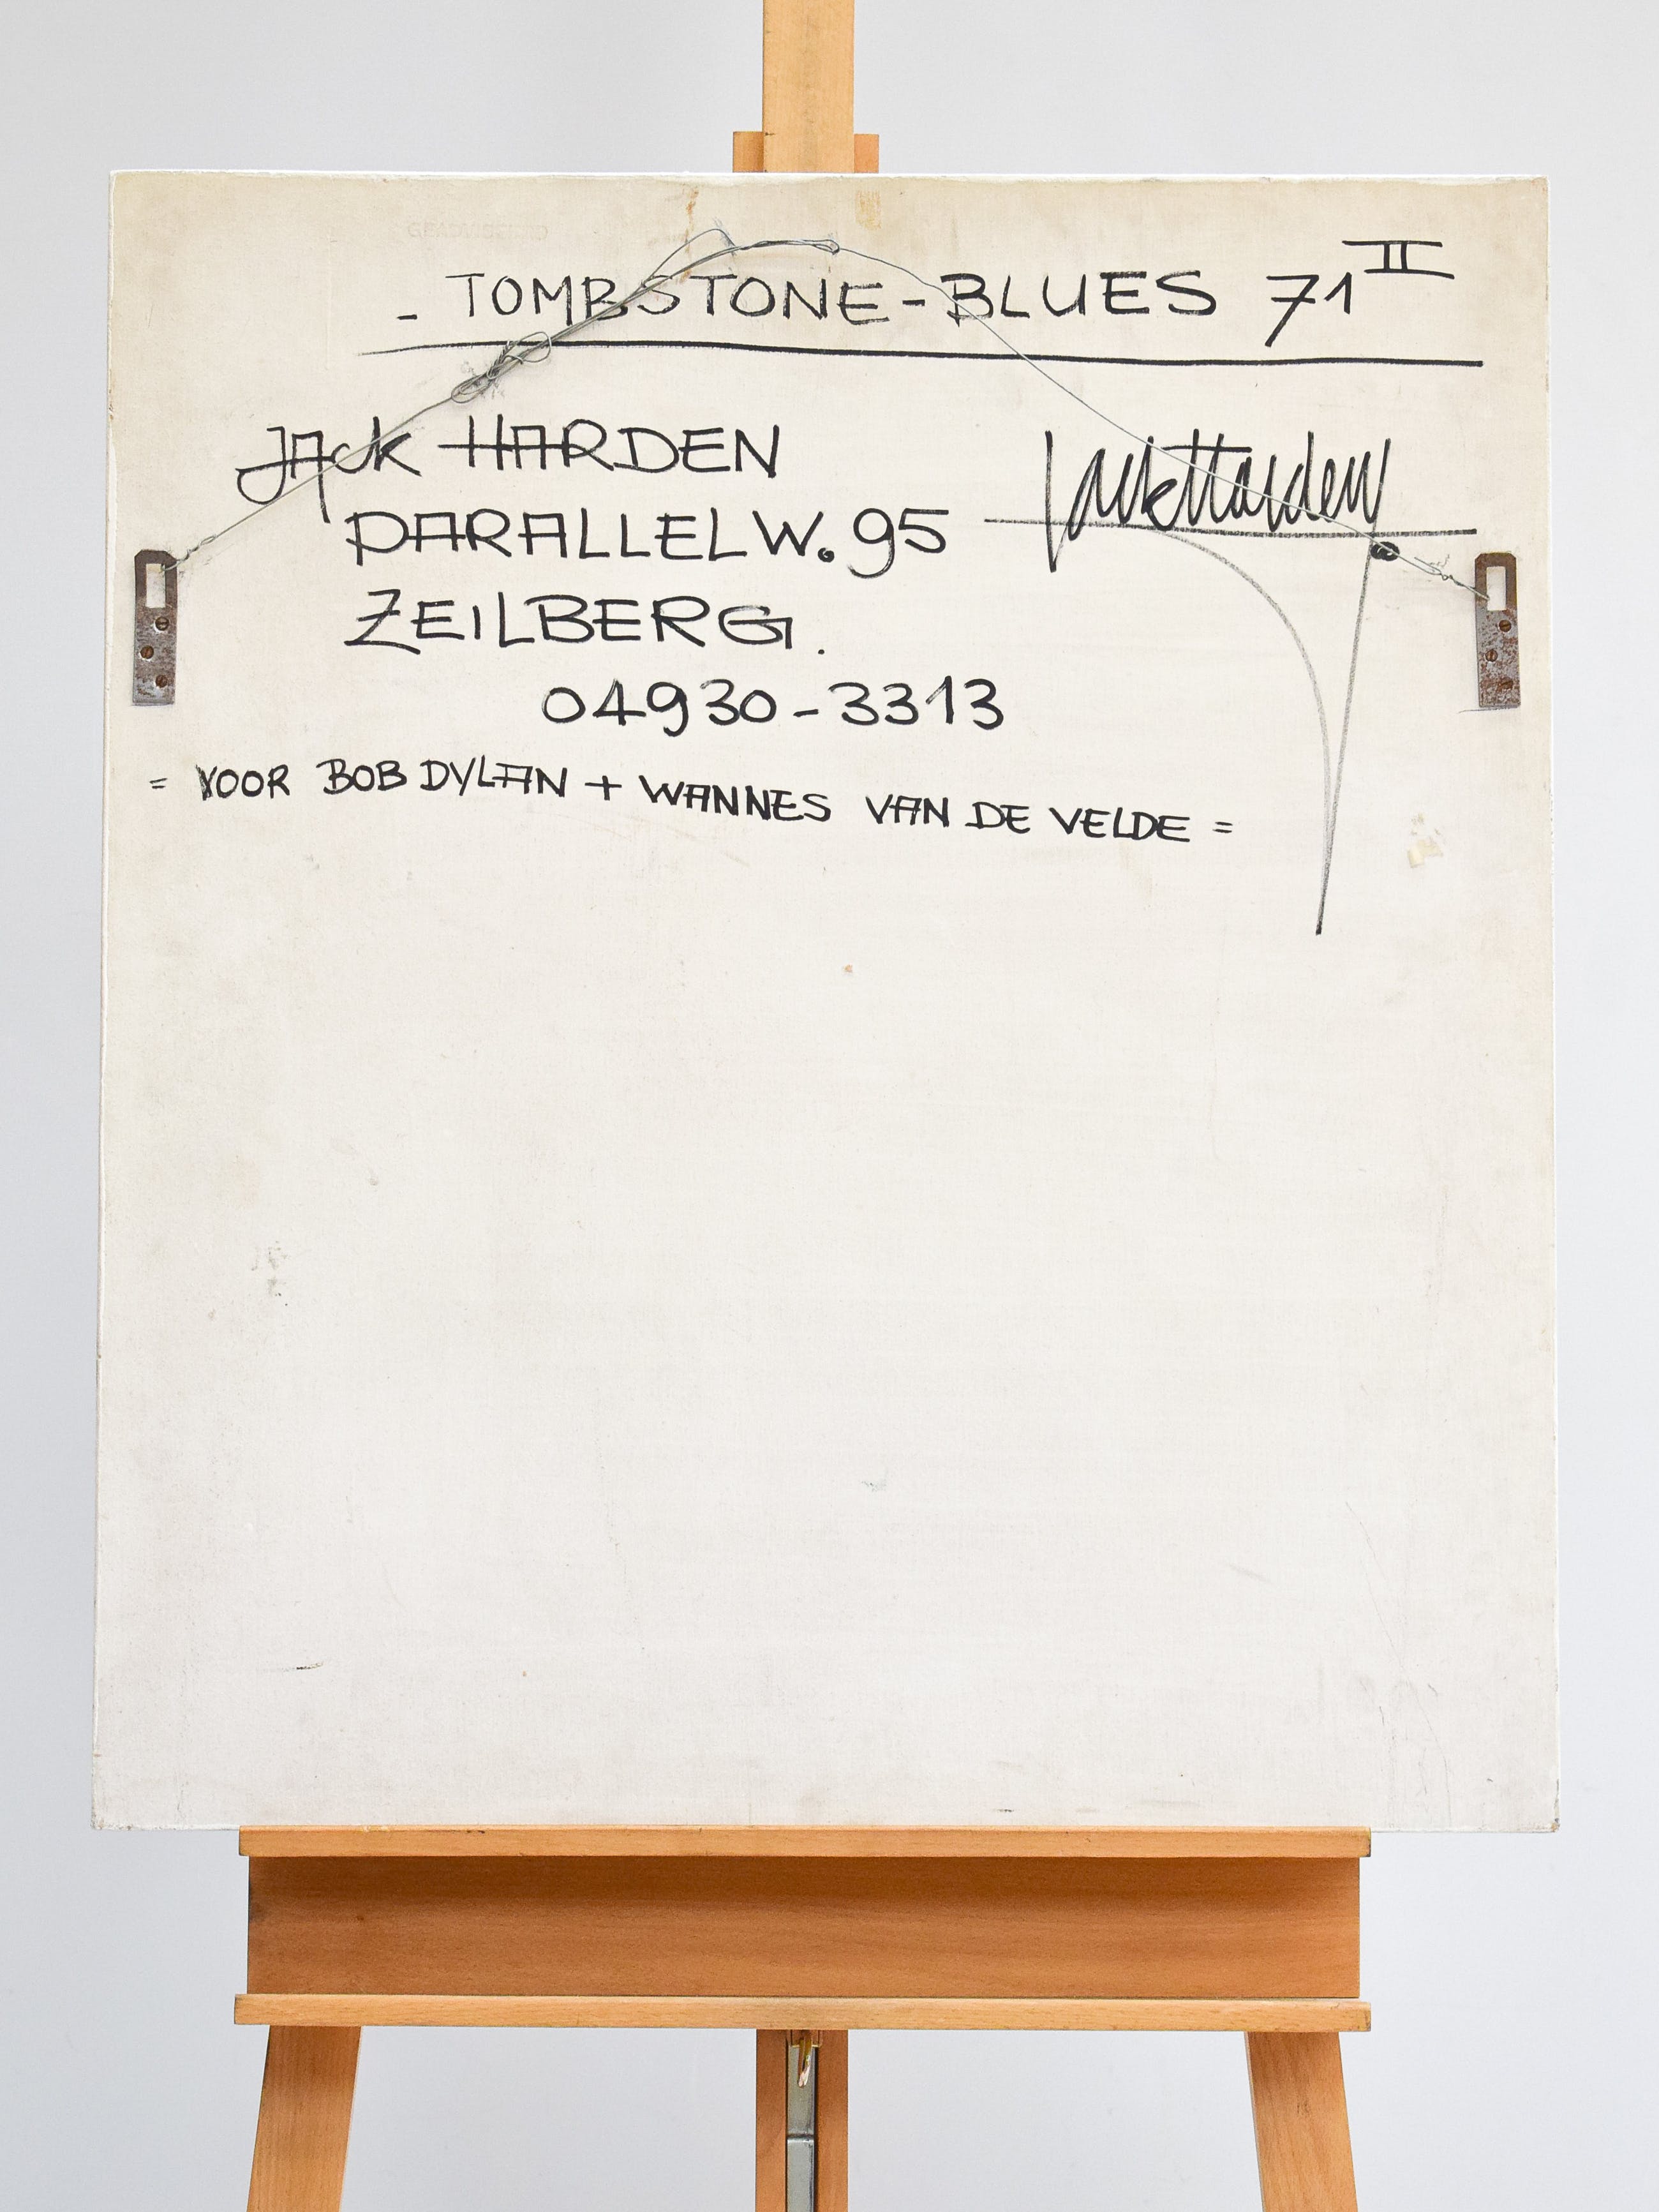 - TOMBSTONE-BLUES 71 II
JACK HARDEN
Jack Harden
PARALLELW. 95
ZEILBERG.
04930-3313
= VOOR BOB DYLAN + WANNES VAN DE VELDE =